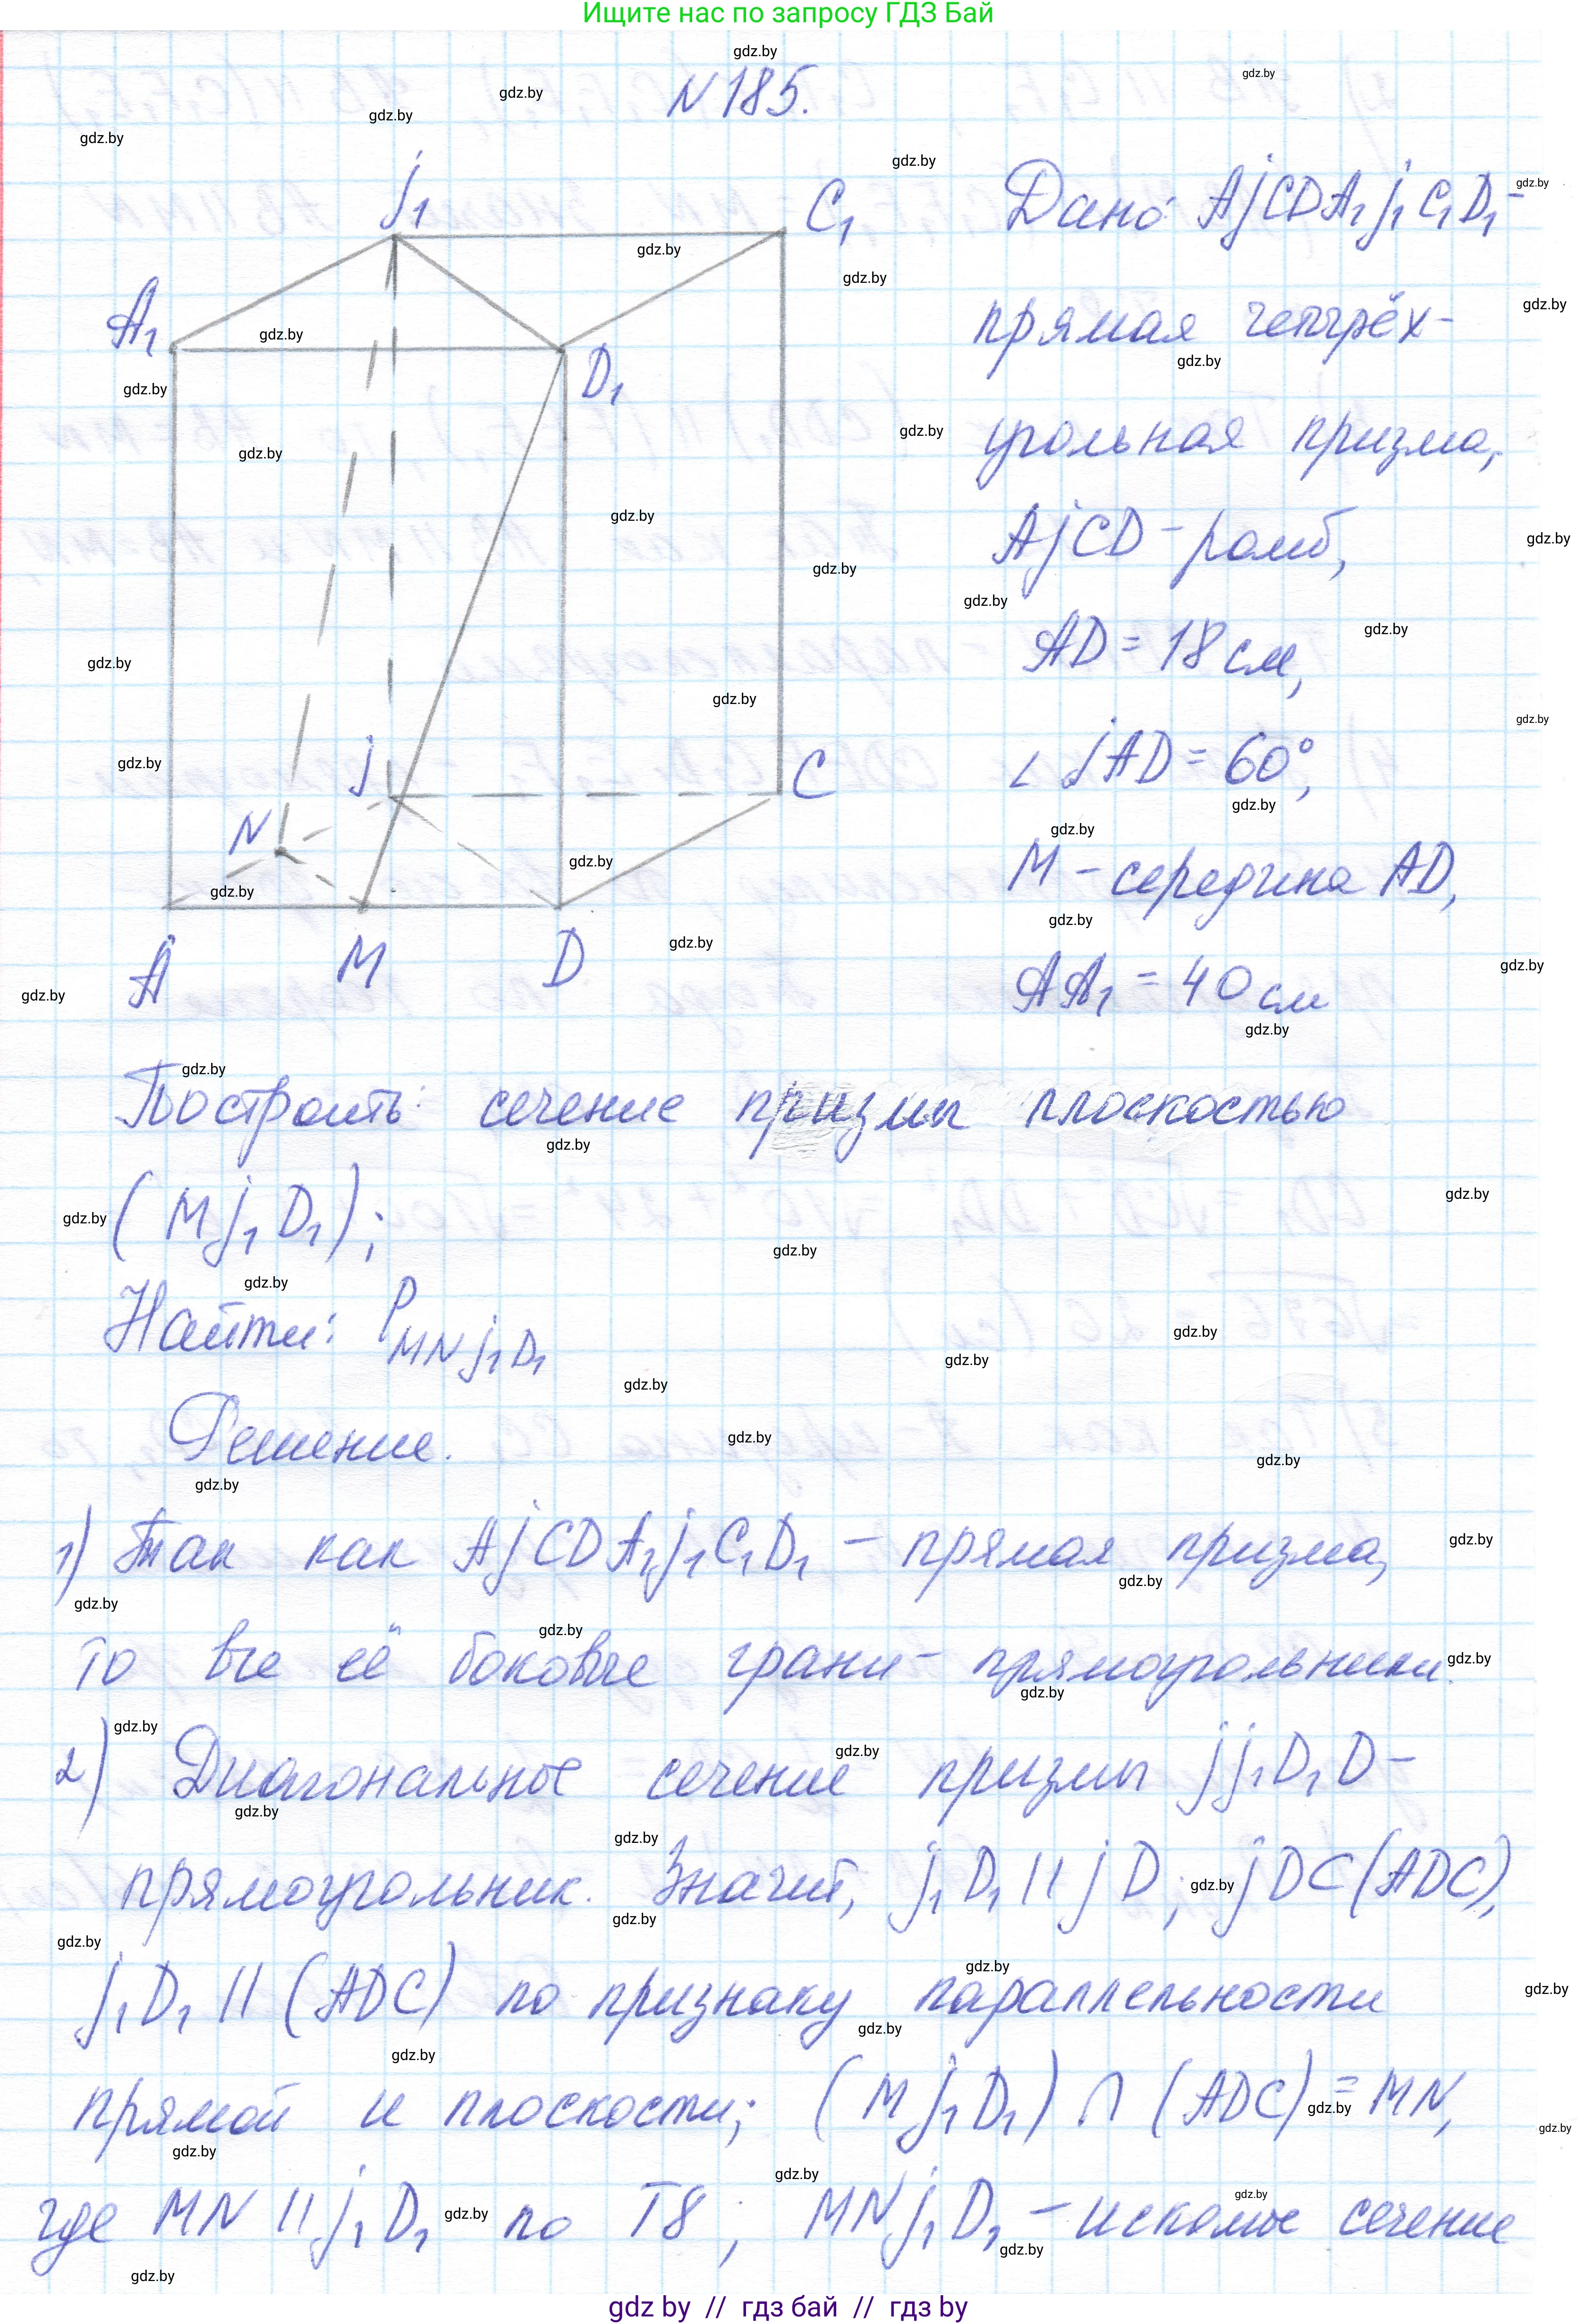 Ищите нас по запросу ГДЗ Бай
N 185.
j₁
C₁
A₁
D₁
j
C
N
A
M
D
Дано: AjCDA₁j₁C₁D₁ –
прямая четырёх-
угольная призма,
AjCD – ромб,
AD = 18 см,
∠ jAD = 60°,
M – середина AD,
AA₁ = 40 см
Построить: сечение призмы плоскостью
(Mj₁D₁);
Найти: P MNj₁D₁
Решение.
1) Так как AjCDA₁j₁C₁D₁ – прямая призма,
то все её боковые грани – прямоугольники.
2) Диагональное сечение призмы jj₁D₁D –
прямоугольник. Значит, j₁D₁ || jD; jD ⊂ (ADC),
j₁D₁ || (ADC) по признаку параллельности
прямой и плоскости; (Mj₁D₁) ∩ (ADC) = MN,
где MN || j₁D₁ по T8; MNj₁D₁ – искомое сечение
gdz by // гдз бай // гдз by